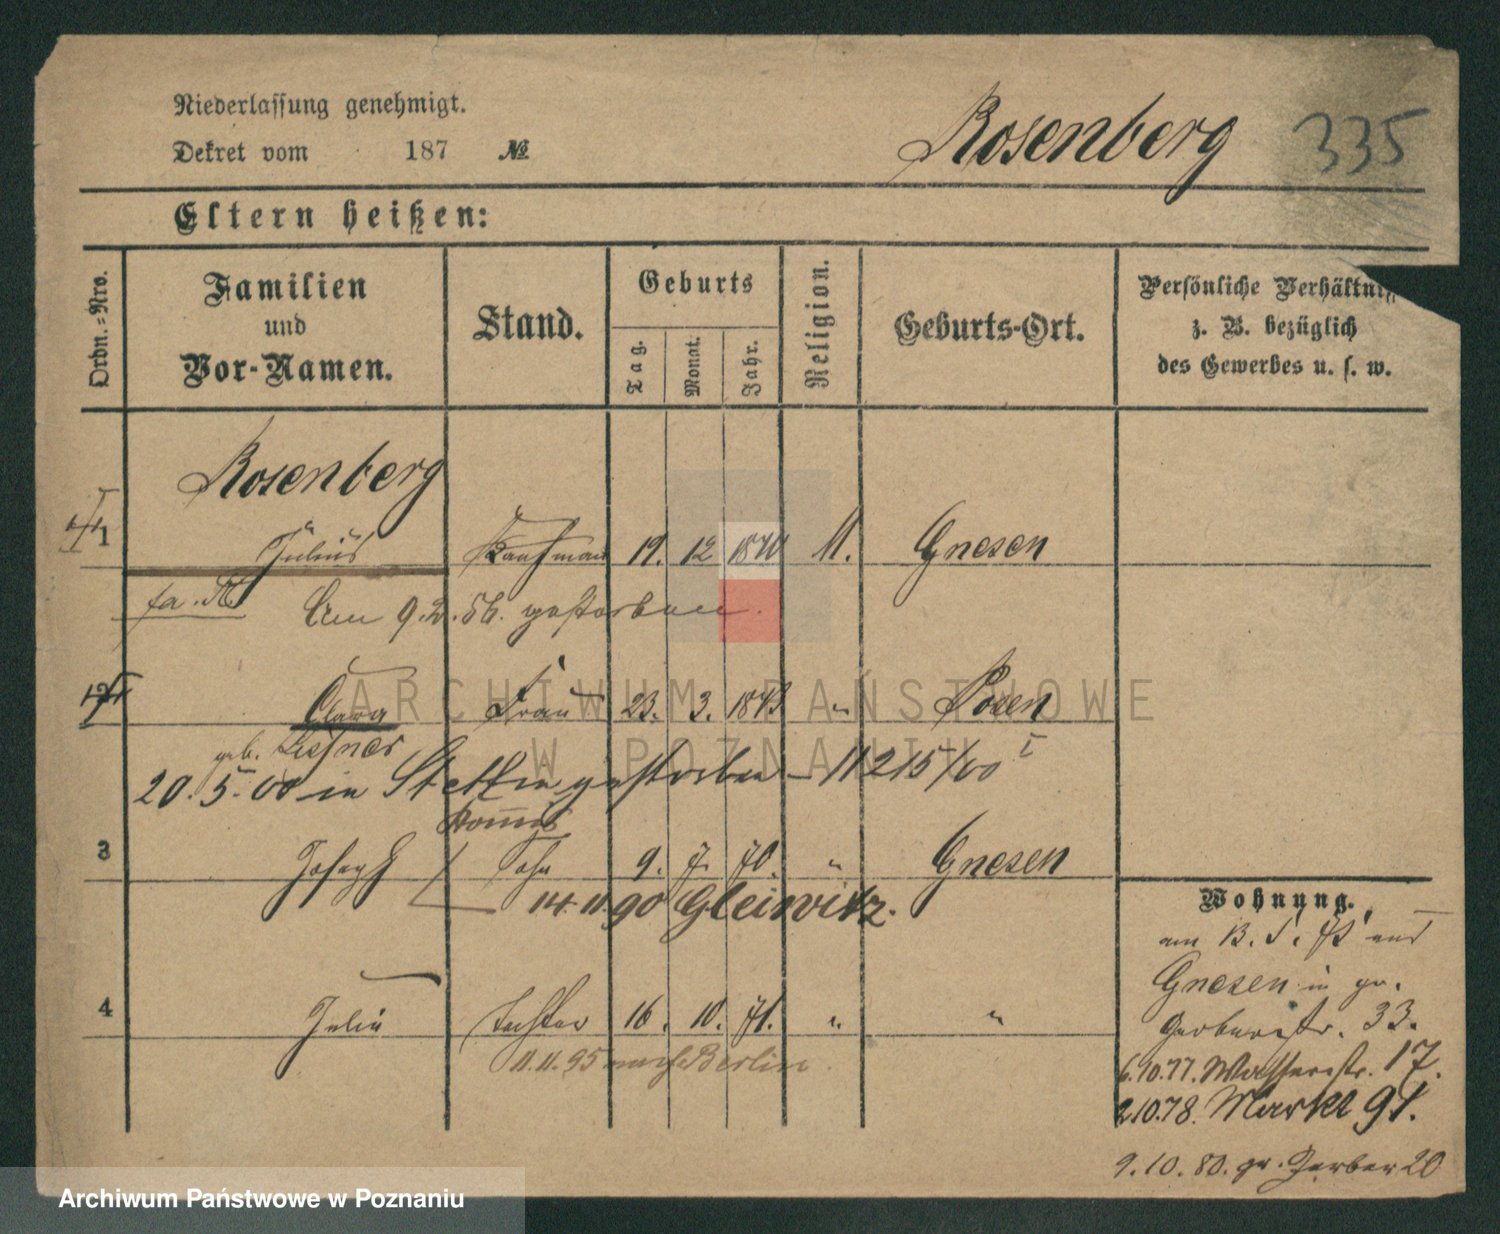 Niederlassung genehmigt.
Dekret vom 187 №
Rosenberg 335
Eltern heißen:
Ordn.-Nro.
Familien und Vor-Namen.
Stand.
Geburts
Tag.
Monat.
Jahr.
Religion.
Geburts-Ort.
Persönliche Verhältniss
z. B. bezüglich
des Gewerbes u. s. w.
Rosenberg
1 Julius Kaufmann 19. 12 1840 M. Gnesen
Am 9.2.86. gestorben.
2 Clara Frau 23. 3. 1843 " Posen
geb. Lessner
20.5.00 in Stettin gestorben - 11215/00 I
3 Joseph Sohn 9. 7. 70. " Gnesen
14.11.90 Gleiwitz.
4 Julie Tochter 16. 10. 71. " "
11.11.95 nach Berlin.
Wohnung.
am 13. 5. 75 aus
Gnesen in gr.
Gerberstr. 33.
6.10.77. Wasserstr. 17.
2.10.78. Markt 91.
9.10.80. gr. Gerber 20
ARCHIWUM PAŃSTWOWE
W POZNANIU
Archiwum Państwowe w Poznaniu